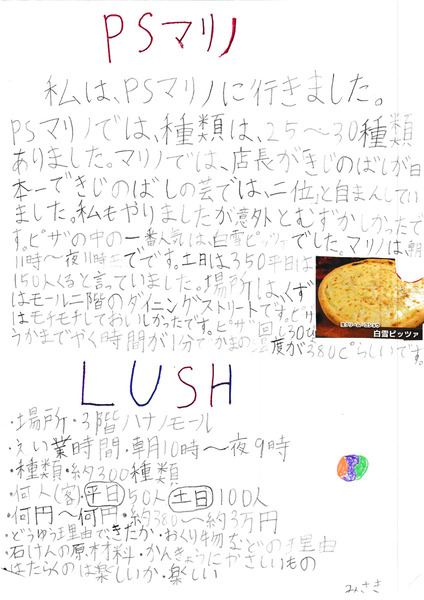 PSマリノ
私は、PSマリノに行きました。
PSマリノでは、種類は、25〜30種類
ありました。マリノでは、店長がきじのばしが日
本一できじのばしの芸では、二位」と自まんしてい
ました。私もやりましたが意外とむずかしかったで
す。ピザの中の一番人気は、白雪ピッツァでした。マリノは、朝
11時〜夜11時までです。土日は350平日は
150人くると言っていました。場所は、くずは
はモール二階のダイニングストリートです。ピザ
はモチモチしておいしかったです。ピザ一回し30び
うかまでやく時間が1分でかまの温度が380℃らしいです。
生クリーム・ハニシロップ
白雪ピッツァ
LUSH
・場所・3階ハナノモール
・えい業時間・朝10時〜夜9時
・種類・約300種類
・何人(客)・平日50人 土日100人
・何円〜何円・約380〜約3万円
・どうゆう理由で、きたか・おくり物などの理由
・石けんの原材料・かんきょうにやさしいもの
・はたらくのは楽しいか・楽しい
みさき